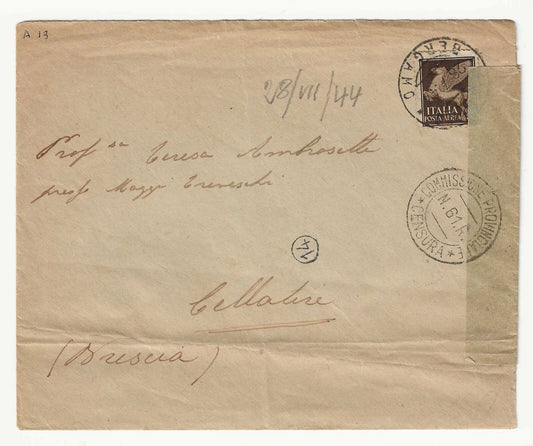 A 13
BERGAMO
28/VII/44
ITALIA
POSTA AEREA
Prof.ssa Teresa Ambrosetti
presso Maggi Treveschi
COMMISSIONE PROVINCIALE
N. 61.R
* CENSURA *
Cellatire
(Brescia)